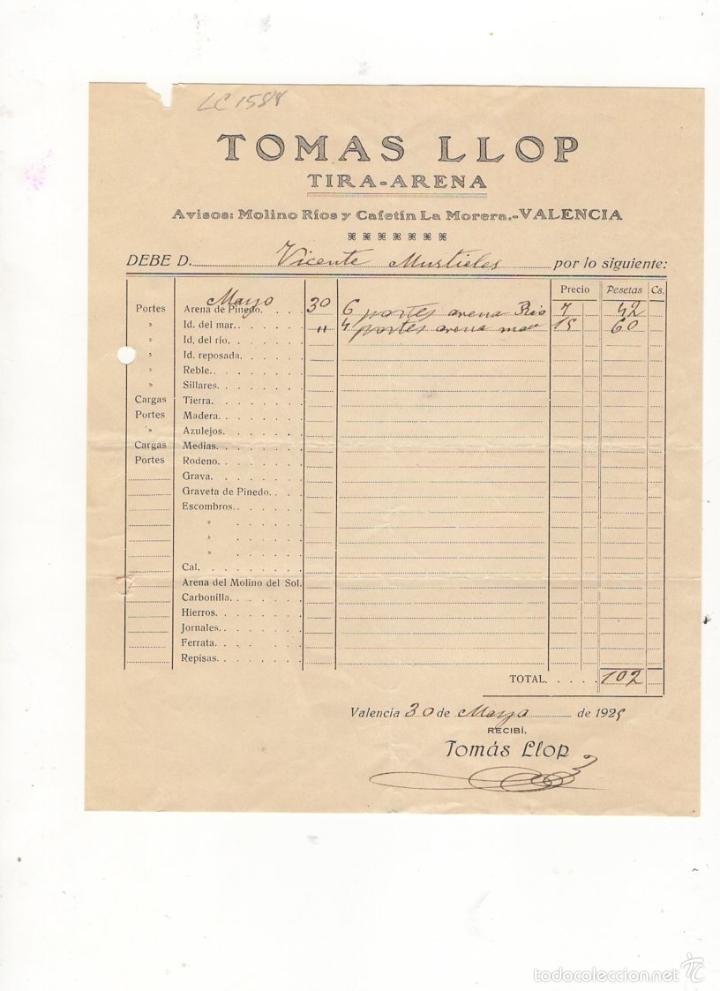 LC 1584
TOMAS LLOP
TIRA-ARENA
Avisos: Molino Ríos y Cafetín La Morera.-VALENCIA
DEBE D. Vicente Mustieles por lo siguiente:
Precio Pesetas Cs.
Mayo
Portes Arena de Pinedo. 30 6 portes arena Rio 7 42
» Id. del mar. " 4 portes arena mar 15 60
» Id. del río.
» Id. reposada.
» Reble.
» Sillares.
Cargas Tierra.
Portes Madera.
» Azulejos.
Cargas Medias.
Portes Rodeno.
Grava.
Graveta de Pinedo.
Escombros.
»
»
»
Cal.
Arena del Molino del Sol.
Carbonilla.
Hierros.
Jornales.
Ferrata.
Repisas.
TOTAL. 102
Valencia 30 de Mayo de 1925
RECIBÍ,
Tomás Llop
todocoleccion.net